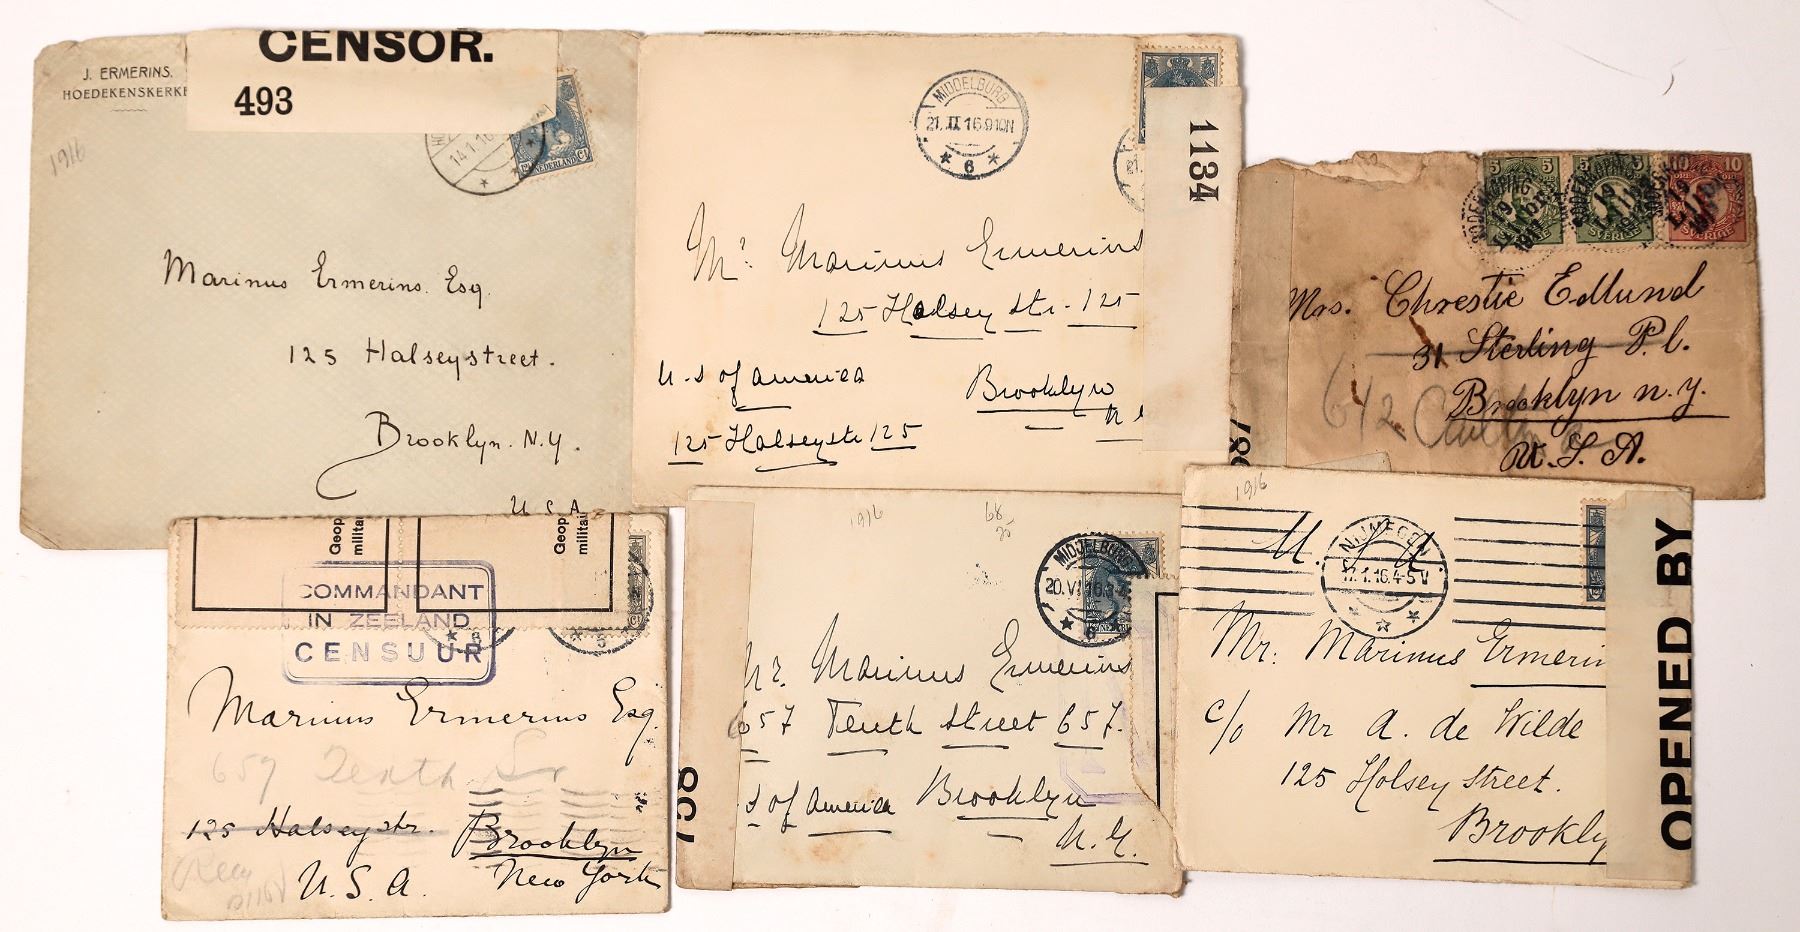 J. ERMERINS.
HOEDEKENSKERKE
CENSOR.
493
1916
14.1.16
NEDERLAND
Marinus Ermerins. Esq.
125 Halseystreet.
Brooklyn. N.Y.
U.S.A
MIDDELBURG
21.II.16.9-10N
6
1134
Mr Marinus Ermerins
125 Halsey Str. 125
U.S of America
Brooklyn
125 Halseystr 125
SÖDERKÖPING
19
5
5
10
10
ÖRE
SVERIGE
SVERIGE
Mrs. Chrestie Edlund
31 Sterling Pl.
Brooklyn n.y.
642
U.S.A.
587
Geop
militai
Geop
militai
COMMANDANT
IN ZEELAND
CENSUUR
6
5
Marinus Ermerins Esq.
657 Tenth Str
125 Halseystr. Brooklyn
U.S.A. New York
1916
68
MIDDELBURG
20.VI.16.3-4
6
758
Mr. Marinus Ermerins
657 Tenth Street 657.
S of America Brooklyn
N.Y.
1916
U.S.A.
NIJMEGEN
17.1.16.4-5V
Mr. Marinus Ermerin
c/o Mr A. de Wilde
125 Holsey Street.
Brookly
OPENED BY